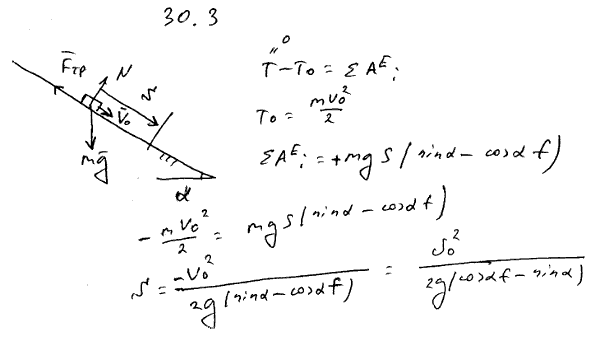 30.3
F̅тр N S V̅₀ mg̅ α
T − T₀ = ΣAᴱᵢ
0
T₀ = mV₀²/2
ΣAᴱᵢ = +mgS(sinα − cosα f)
− mV₀²/2 = mgS(sinα − cosα f)
S = −V₀²/2g(sinα − cosα f) = V₀²/2g(cosα f − sinα)